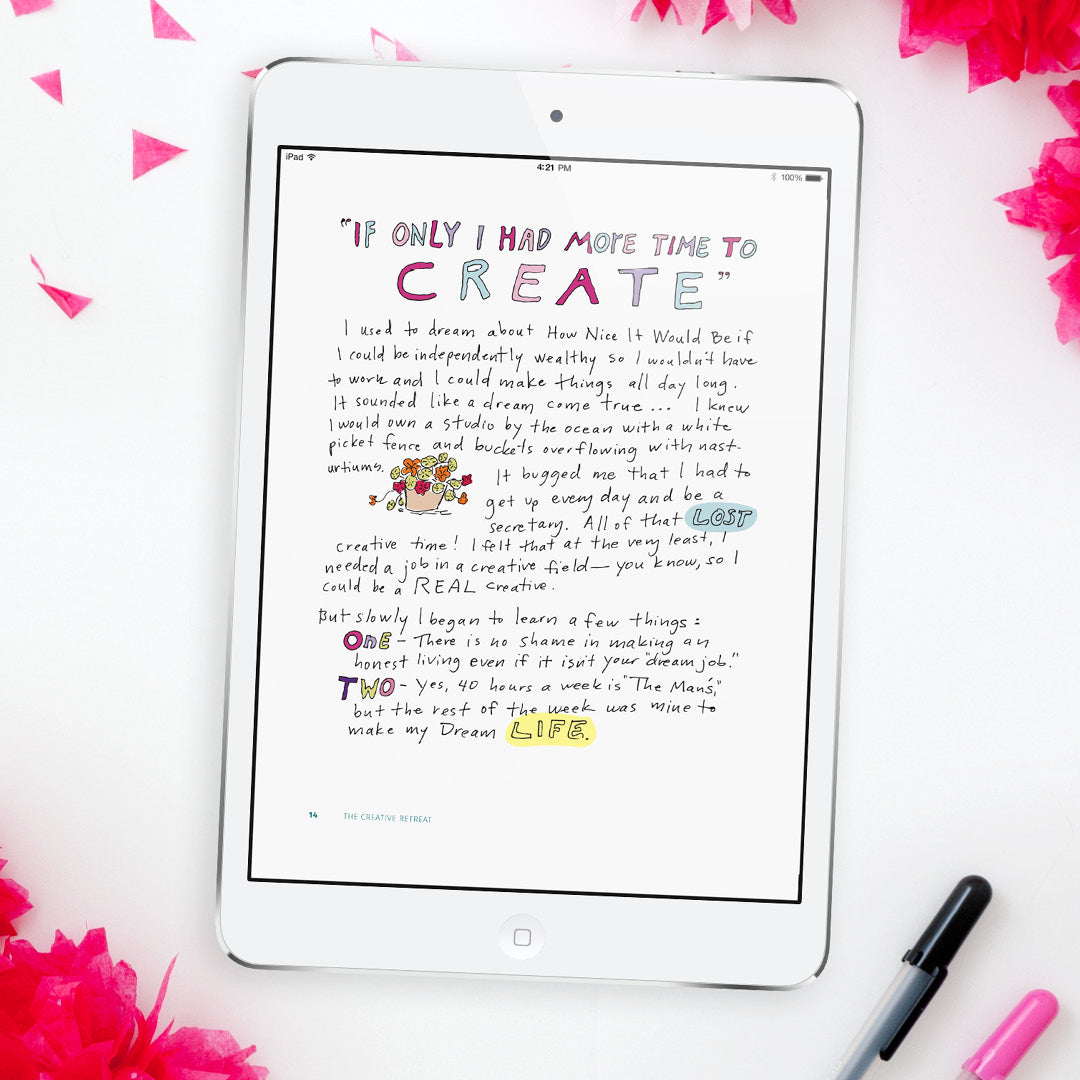 iPad
4:21 PM
100%
"IF ONLY I HAD MOrE TIME TO
CREATE"
I used to dream about How Nice It Would Be if
I could be independently wealthy so I wouldn't have
to work and I could make things all day long.
It sounded like a dream come true... I knew
I would own a studio by the ocean with a white
picket fence and buckets overflowing with nast-
urtiums.
It bugged me that I had to
get up every day and be a
secretary. All of that LOST
creative time! I felt that at the very least, I
needed a job in a creative field — you know, so I
could be a REAL creative.
But slowly I began to learn a few things:
OnE - There is no shame in making an
honest living even if it isn't your "dream job."
TWO - Yes, 40 hours a week is "The Man's,"
but the rest of the week was mine to
make my Dream LIFE.
14 THE CREATIVE RETREAT